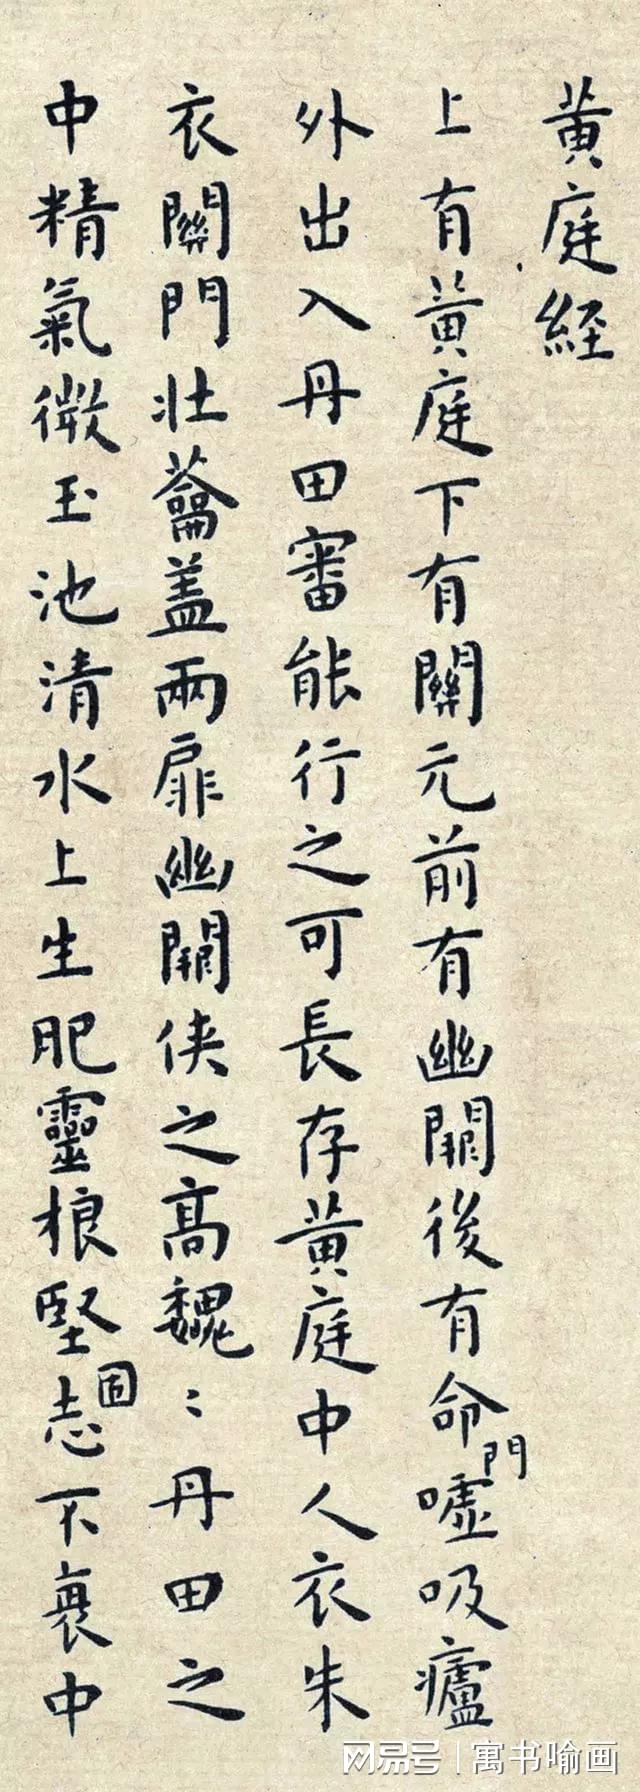 黄庭經
上有黄庭下有關元前有幽闕後有命門嘘吸廬
外出入丹田審能行之可長存黄庭中人衣朱
衣關門壯蘥盖兩扉幽闕侠之高魏〻丹田之
中精氣微玉池清水上生肥靈根堅固志不衰中
网易号 | 寓书喻画